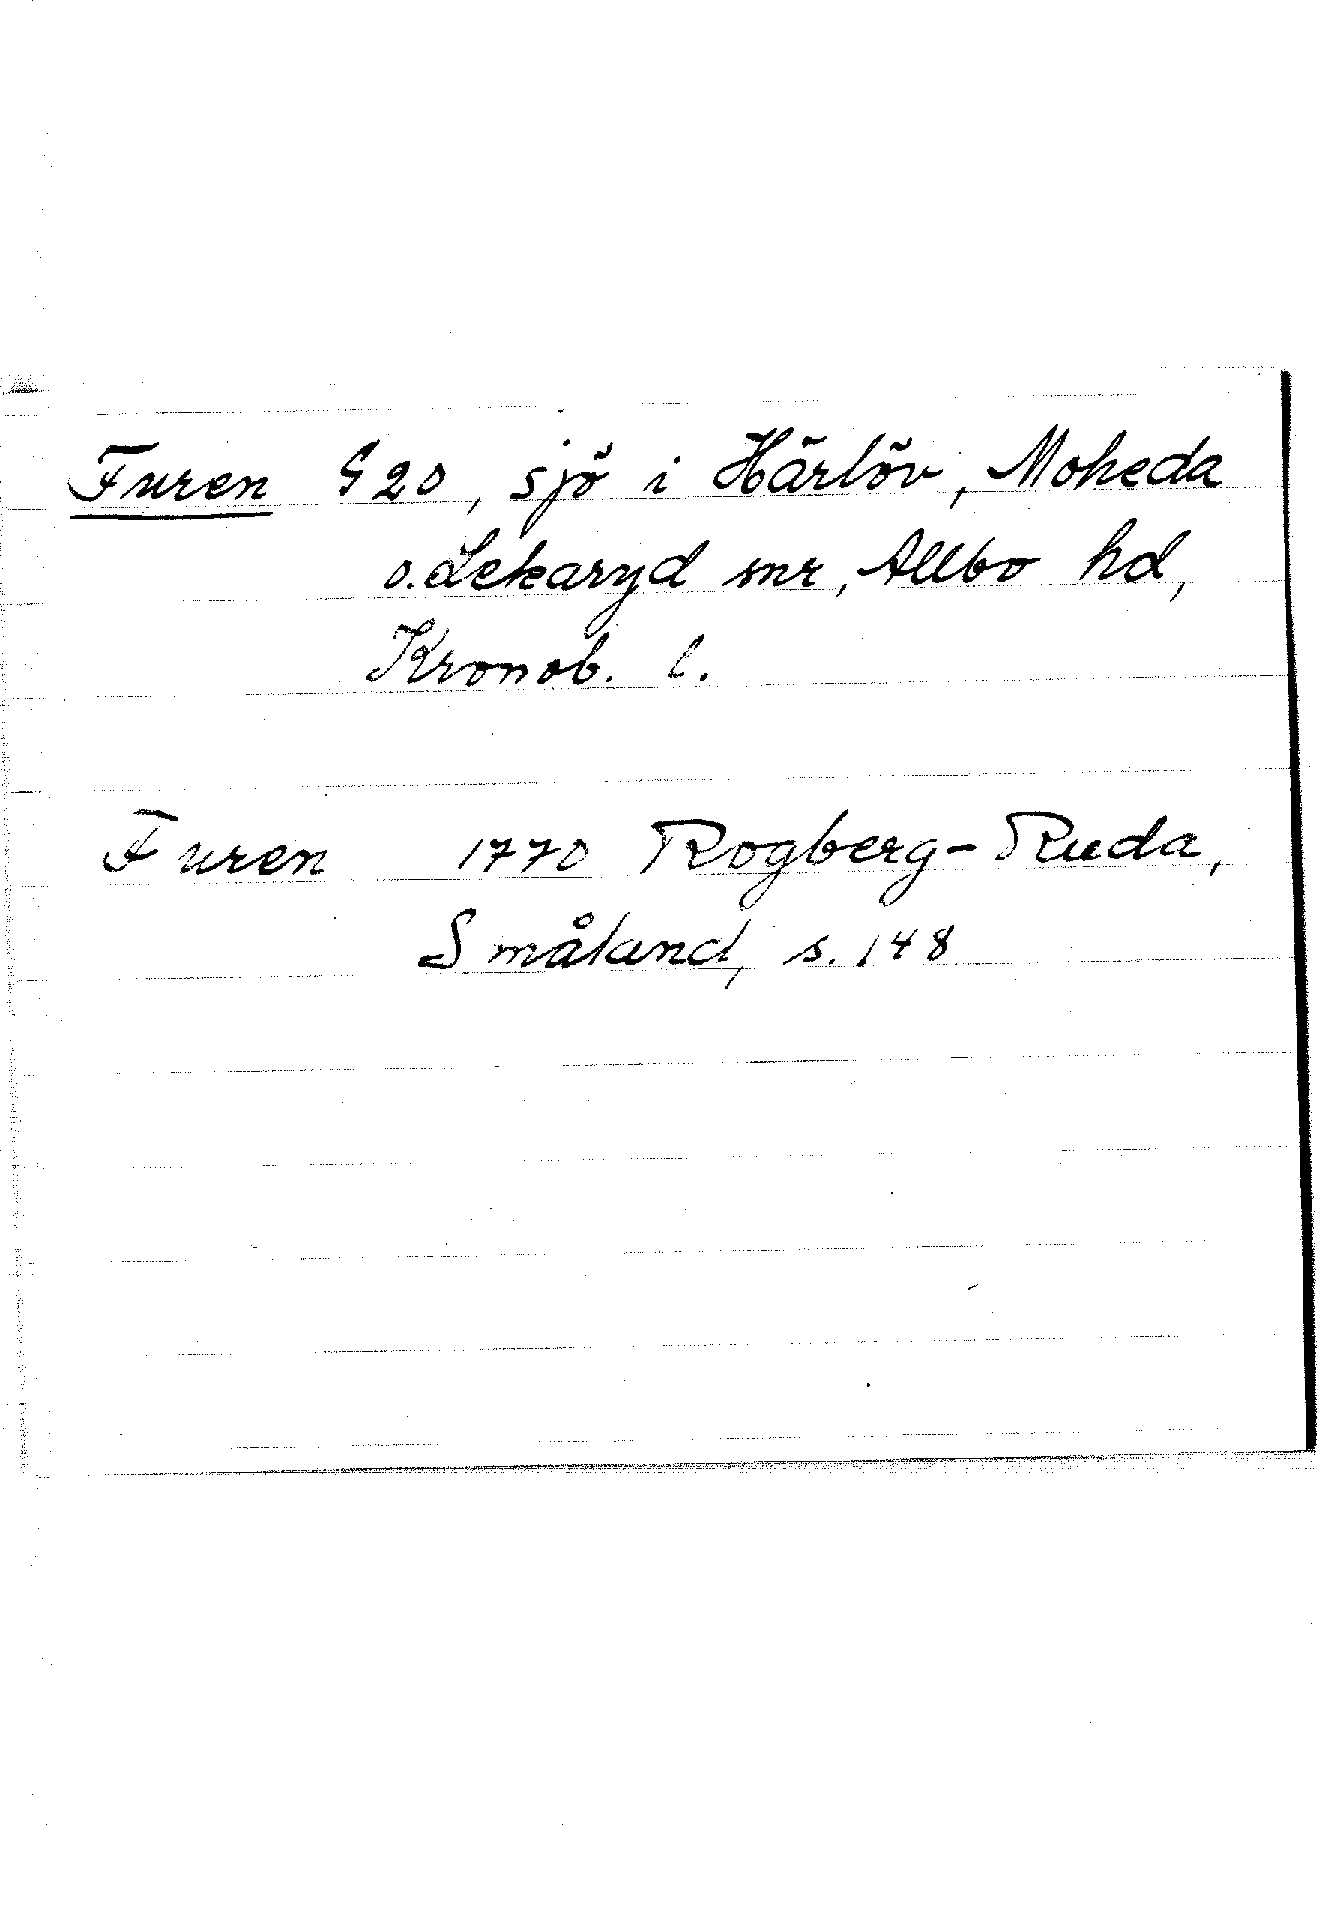 Furen G20, sjö i Härlöv, Moheda
o. Lekaryd snr, Allbo hd,
Kronob. l.
Furen 1770 Rogberg-Ruda,
Småland, s. 148